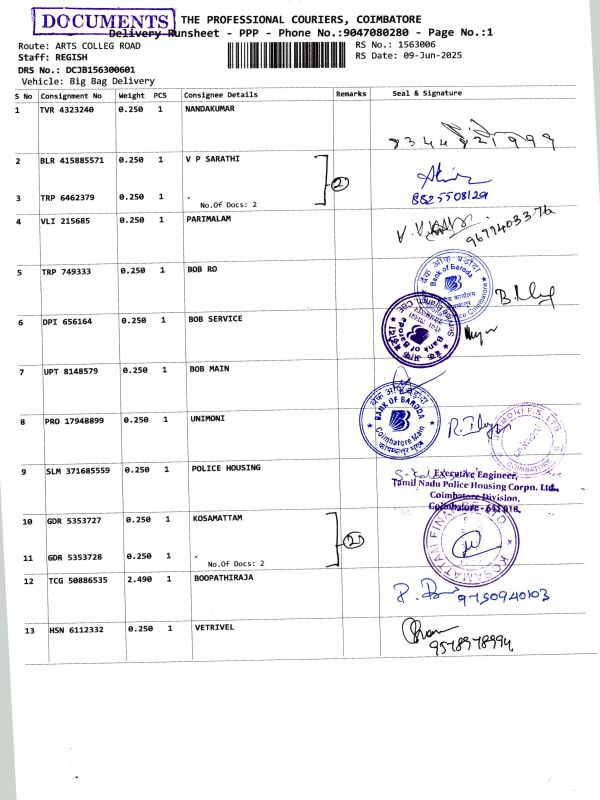 DOCUMENTS
THE PROFESSIONAL COURIERS, COIMBATORE
Delivery Runsheet - PPP - Phone No.:9047080280 - Page No.:1
Route: ARTS COLLEG ROAD
Staff: REGISH
DRS No.: DCJB156300601
Vehicle: Big Bag Delivery
RS No.: 1563006
RS Date: 09-Jun-2025
S No Consignment No Weight PCS Consignee Details Remarks Seal & Signature
1 TVR 4323240 0.250 1 NANDAKUMAR
2 BLR 415885571 0.250 1 V P SARATHI
2
3 TRP 6462379 0.250 1 .
No.Of Docs: 2
8825508129
4 VLI 215685 0.250 1 PARIMALAM
9677403376
5 TRP 749333 0.250 1 BOB RO
बैंक ऑफ़ बड़ौदा
Bank of Baroda
6 DPI 656164 0.250 1 BOB SERVICE
Bank of Baroda
7 UPT 8148579 0.250 1 BOB MAIN
बैंक ऑफ़ बड़ौदा
BANK OF BARODA
Coimbatore Main
8 PRO 17948899 0.250 1 UNIMONI
COIMBATORE
9 SLM 371685559 0.250 1 POLICE HOUSING
Executive Engineer,
Tamil Nadu Police Housing Corpn. Ltd.,
Coimbatore Division,
Coimbatore - 641 018.
10 GDR 5353727 0.250 1 KOSAMATTAM
2
11 GDR 5353728 0.250 1 .
No.Of Docs: 2
KOSAMATTAM FINANCE LTD
12 TCG 50886535 2.490 1 BOOPATHIRAJA
9750940103
13 HSN 6112332 0.250 1 VETRIVEL
9578978994